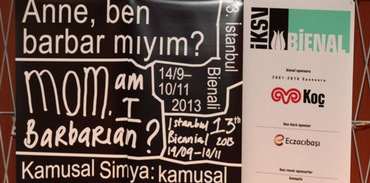 Anne, ben
barbar mıyım?
mom, am
I
Barbarian?
14/9–
10/11
2013
13. istanbul
Bienali
Istanbul 13th
Biennial 2013
14/09 – 10/11
Kamusal Simya: kamusal
İKSV
BİENAL
2007-2016 Sponsoru
Koç
Eczacıbaşı